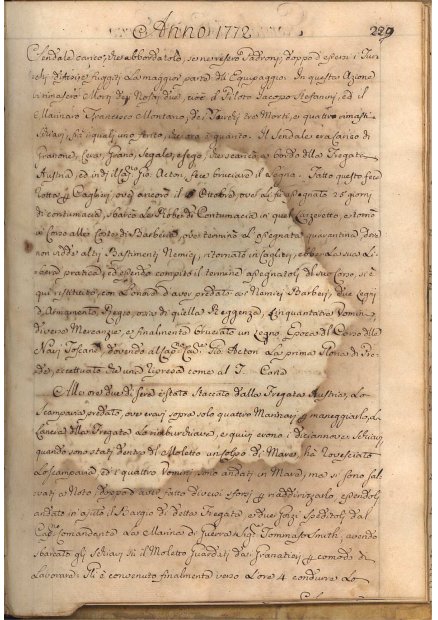 Anno 1772 229
Sendale carico, che abbordatolo, se ne resero Padroni, doppo d'essersi i Tur-
chi fuggiti la maggior parte dell'Equipaggio. In questa Azione
vi rimasero Morti de Nostri due, cioè il Piloto Iacopo Stefanini, ed il
Marinaro Francesco Montano, de Turchi tre Morti, e quattro rimasti
Schiavi, frà i quali uno ferito, che era à quando. Il Sendale era carico di
Granone, Grano, Segale, e sego, che scaricò a bordo della Fregata
Austria, ed indi il Cap. Gio. Acton, fece bruciare il Legno. Fatto questo fece
Rotta p Cagliari, ove ancorò il Ottobre, ove gli fù assegnato 25 giorni
di contumacia, sbarcò la Robe di Contumacia in quel Lazzeretto, e tornò
in Corso alle Coste di Barberia, ove terminò l'assegnata quarantina dove
non vidde altri Bastimenti Nemici, ritornato in Cagliari, ebbe la sua Li-
bera pratica, ed essendo compito il termine assegnatoli del suo Corso, si è
qui restituito, con l'onore d'aver predato a Nemici Barberi, due Legni
d'Armamento, Regio, uno di quella Reggenza, Cinquantatre Uomini,
diverse Mercanzie, e finalmente bruciato un Legno. Epoca del Corso delle
Navi Toscane, dovendo al Cap. Cav. Gio. Acton la prima Gloria di Pre-
de, eccettuato che una Ripresa come al T. Cand.
Alle ore due di sera è stato staccato dalla Fregata Austria, lo
Scampavia predato, ove eravi sopra solo quattro Marinari p maneggiarlo, la
Lancia della Fregata lo rimburchiava, e quivi erono i diciannove Schiavi
quando sono stati dentro al Moletto un colpo di Mare, hà rovesciato
lo Scampavia, ed i quattro Uomini, sono andati in Mare, ma si sono sal-
vati a Noto, doppo d aver fatto diversi sforzi p raddirizzarlo, essendoli
andato in ajuto il Bargio di detta Fregata, e due Gozzi spediteli dal
Cap. Comandante la Marina di Guerra Sig. Tommaso Smith, avendo
sbarcato gli Schiavi sù il Moletto Guardati da Granatieri p comodo di
Lavorare. Gli è convenuto finalmente verso l'ore 4 condurre lo